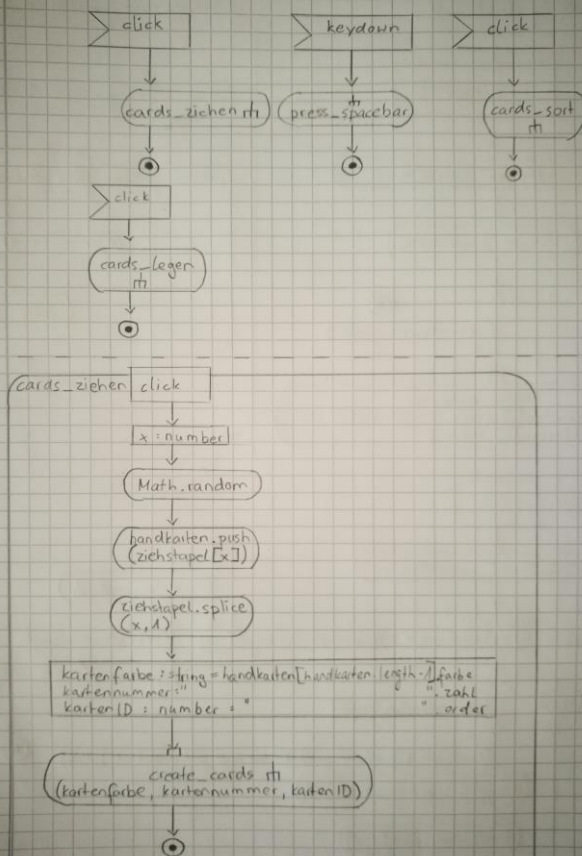 click
keydown
click
cards_ziehen
press_spacebar
cards_sort
click
cards_legen
cards_ziehen
click
x : number
Math.random
handkarten.push
(ziehstapel[x])
ziehstapel.splice
(x,1)
kartenfarbe : string = handkarten[handkarten.length-1].farbe
kartennummer : " " . zahl
kartenID : number : " " order
create_cards
(kartenfarbe, kartennummer, kartenID)